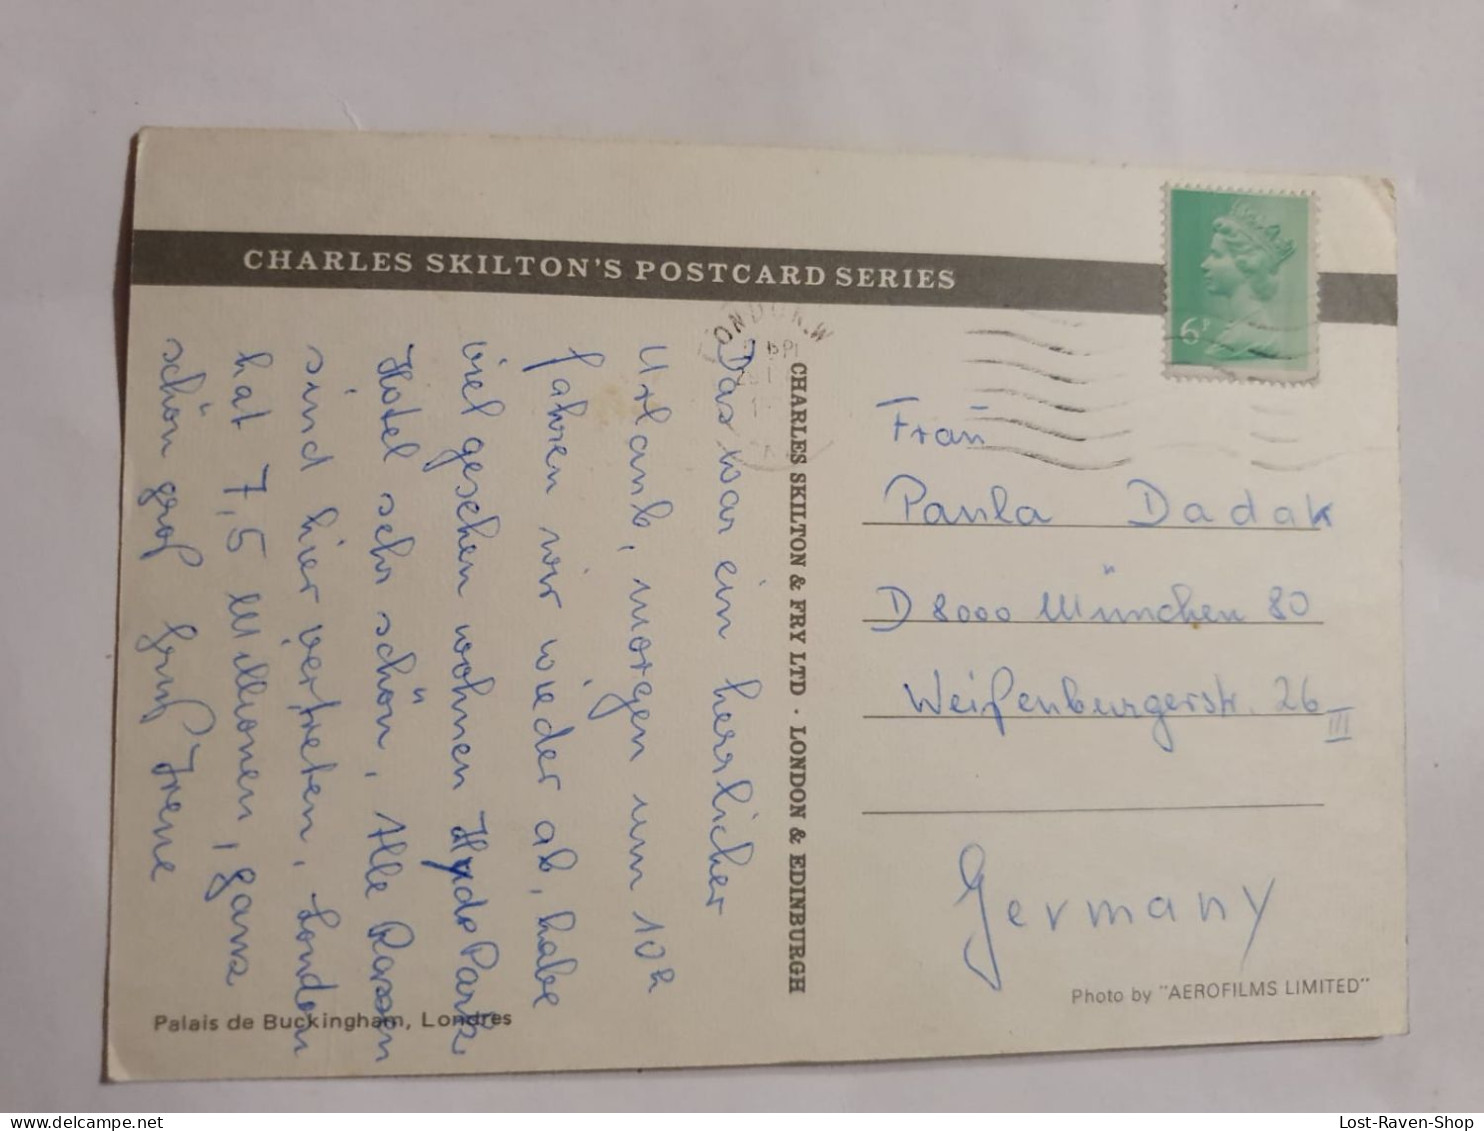 CHARLES SKILTON'S POSTCARD SERIES
6P
LONDON.W
Das war ein herrlicher
Urlaub, morgen um 10h
fahren wir wieder ab, habe
viel gesehen wohnen Hyde Park
Hotel sehr schön, Alle Rassen
sind hier vertreten, London
hat 7,5 Millionen, ganz
schön groß Gruß Irene
CHARLES SKILTON & FRY LTD · LONDON & EDINBURGH
Frau
Paula Dadak
D 8000 München 80
Weißenburgerstr. 26 III
Germany
Palais de Buckingham, Londres
Photo by "AEROFILMS LIMITED"
Lost-Raven-Shop